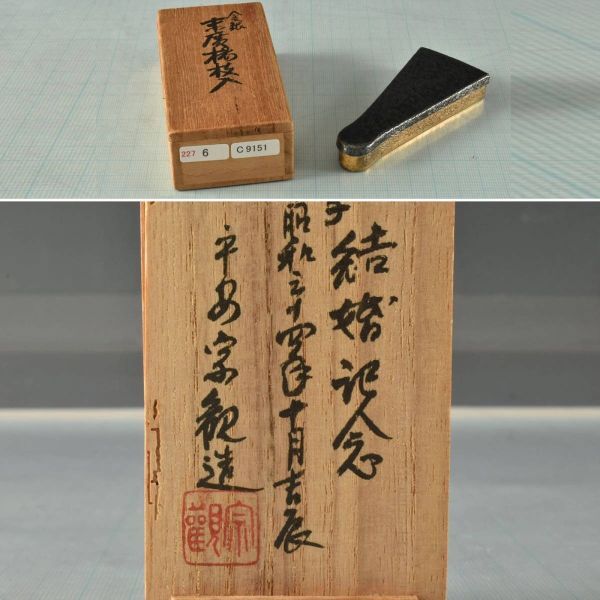 金銀
末廣楊枝入
227 6
C 9151
子
結婚記念
昭和三十四年十月吉辰
平安宗観造
宗觀